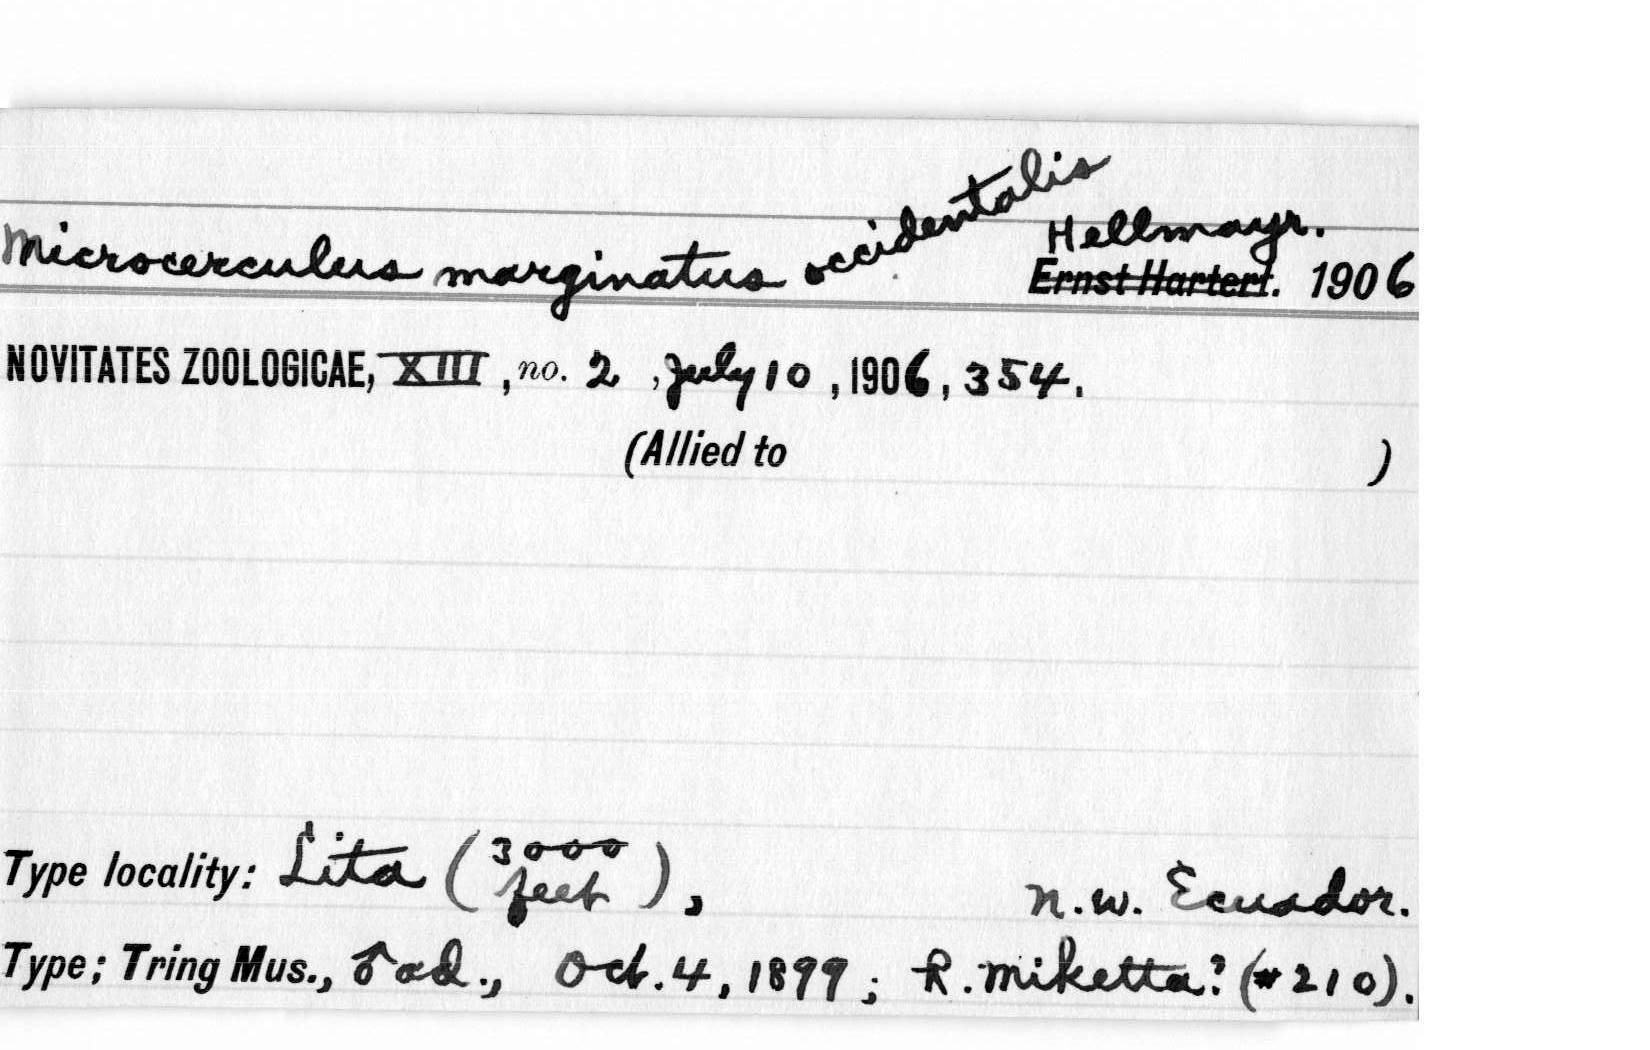 Microcerculus marginatus occidentalis Hellmayr.
Ernst Hartert. 1906
NOVITATES ZOOLOGICAE, XIII, no. 2, July 10, 1906, 354.
(Allied to )
Type locality: Lita (3000 feet), N.W. Ecuador.
Type; Tring Mus., ♂ ad., Oct. 4, 1899; R. Miketta? (#210).